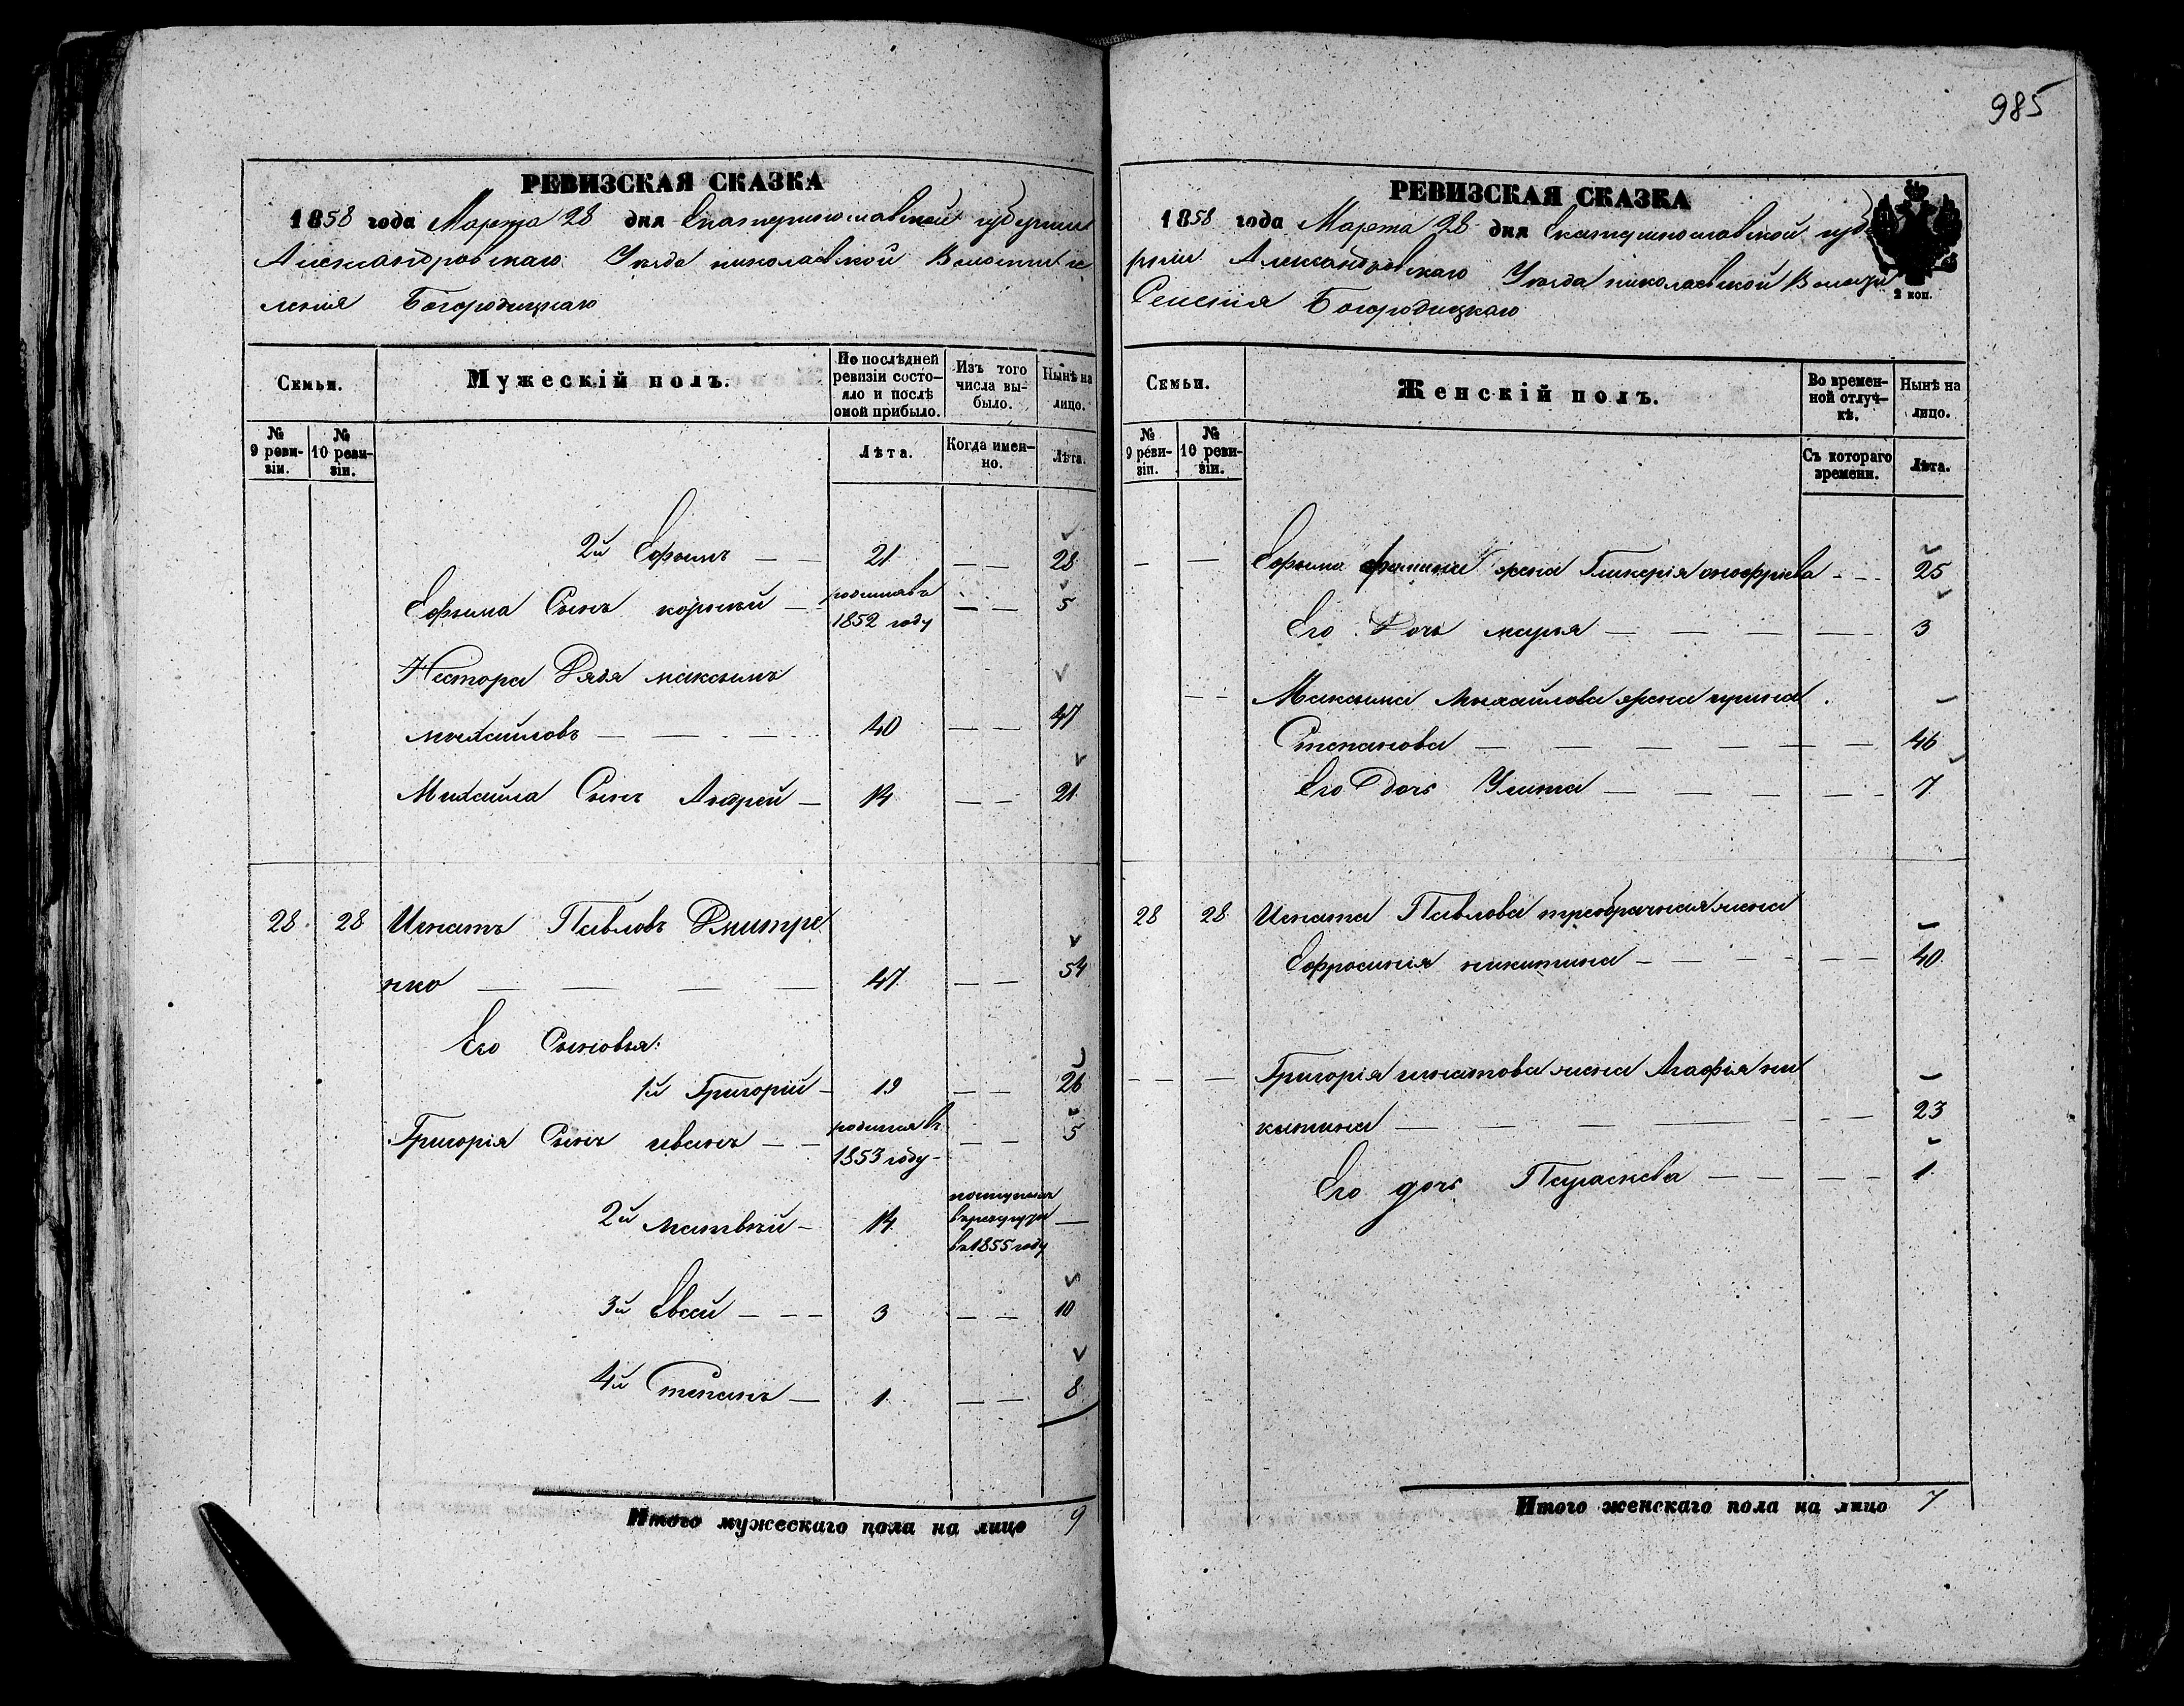 985
РЕВИЗСКАЯ СКАЗКА
1858 года Марта 28 дня Екатеринославской губернии
Александровскаго Уезда николаевской Волости се
ления Богородицкаго
Семьи.
Мужескій полъ.
По послѣдней ревизіи состо-яло и послѣ оной прибыло.
Изъ того числа вы-было.
Нынѣ на лицо.
№ 9 реви-зіи.
№ 10 реви-зіи.
Лѣта.
Когда имен-но.
Лѣта.
2й Ефимъ — — 21 — — 28
Ефима Сынъ корней — родился въ 1852 году — — 5
Нестора Дядя максимъ
михайловъ — — — 40 — — 47
Михайла Сынъ Андрей — 14 — — 21
28 28 Игнатъ Павловъ Дмитре
нко — — — — 47 — — 54
Его Сыновья:
1й Григорій — 19 — — 26
Григорія Сынъ иванъ — — родился въ 1853 году — — — 5
2й матвѣй — 14 поступилъ в рекруты въ 1855 году —
3й Евсей — — — 3 — — 10
4й Степанъ — 1 — — 8
Итого мужескаго пола на лицо 9
РЕВИЗСКАЯ СКАЗКА
1858 года Марта 28 дня Екатеринославской губе
рніи Александровскаго Уезда николаевской Волости
Селения Богородицкаго
2 коп.
Семьи.
Женскій полъ.
Во времен-ной отлуч-кѣ.
Нынѣ на лицо.
№ 9 реви-зіи.
№ 10 реви-зіи.
Съ котораго времени.
Лѣта.
— — Ефима жена Гликерія онофріева — — 25
Его Дочь марья — — — — — 3
— — Максима Михайлова жена ирина
Степанова — — — — — — 46
Его дочь Улита — — — — — 7
28 28 Игната Павлова жена
Ефросинія никитина — — — — — 40
— — — Григорія игнатова жена Агафія ни
китина — — — — — — 23
Его дочь Параскева — — — — 1
Итого женскаго пола на лицо 7